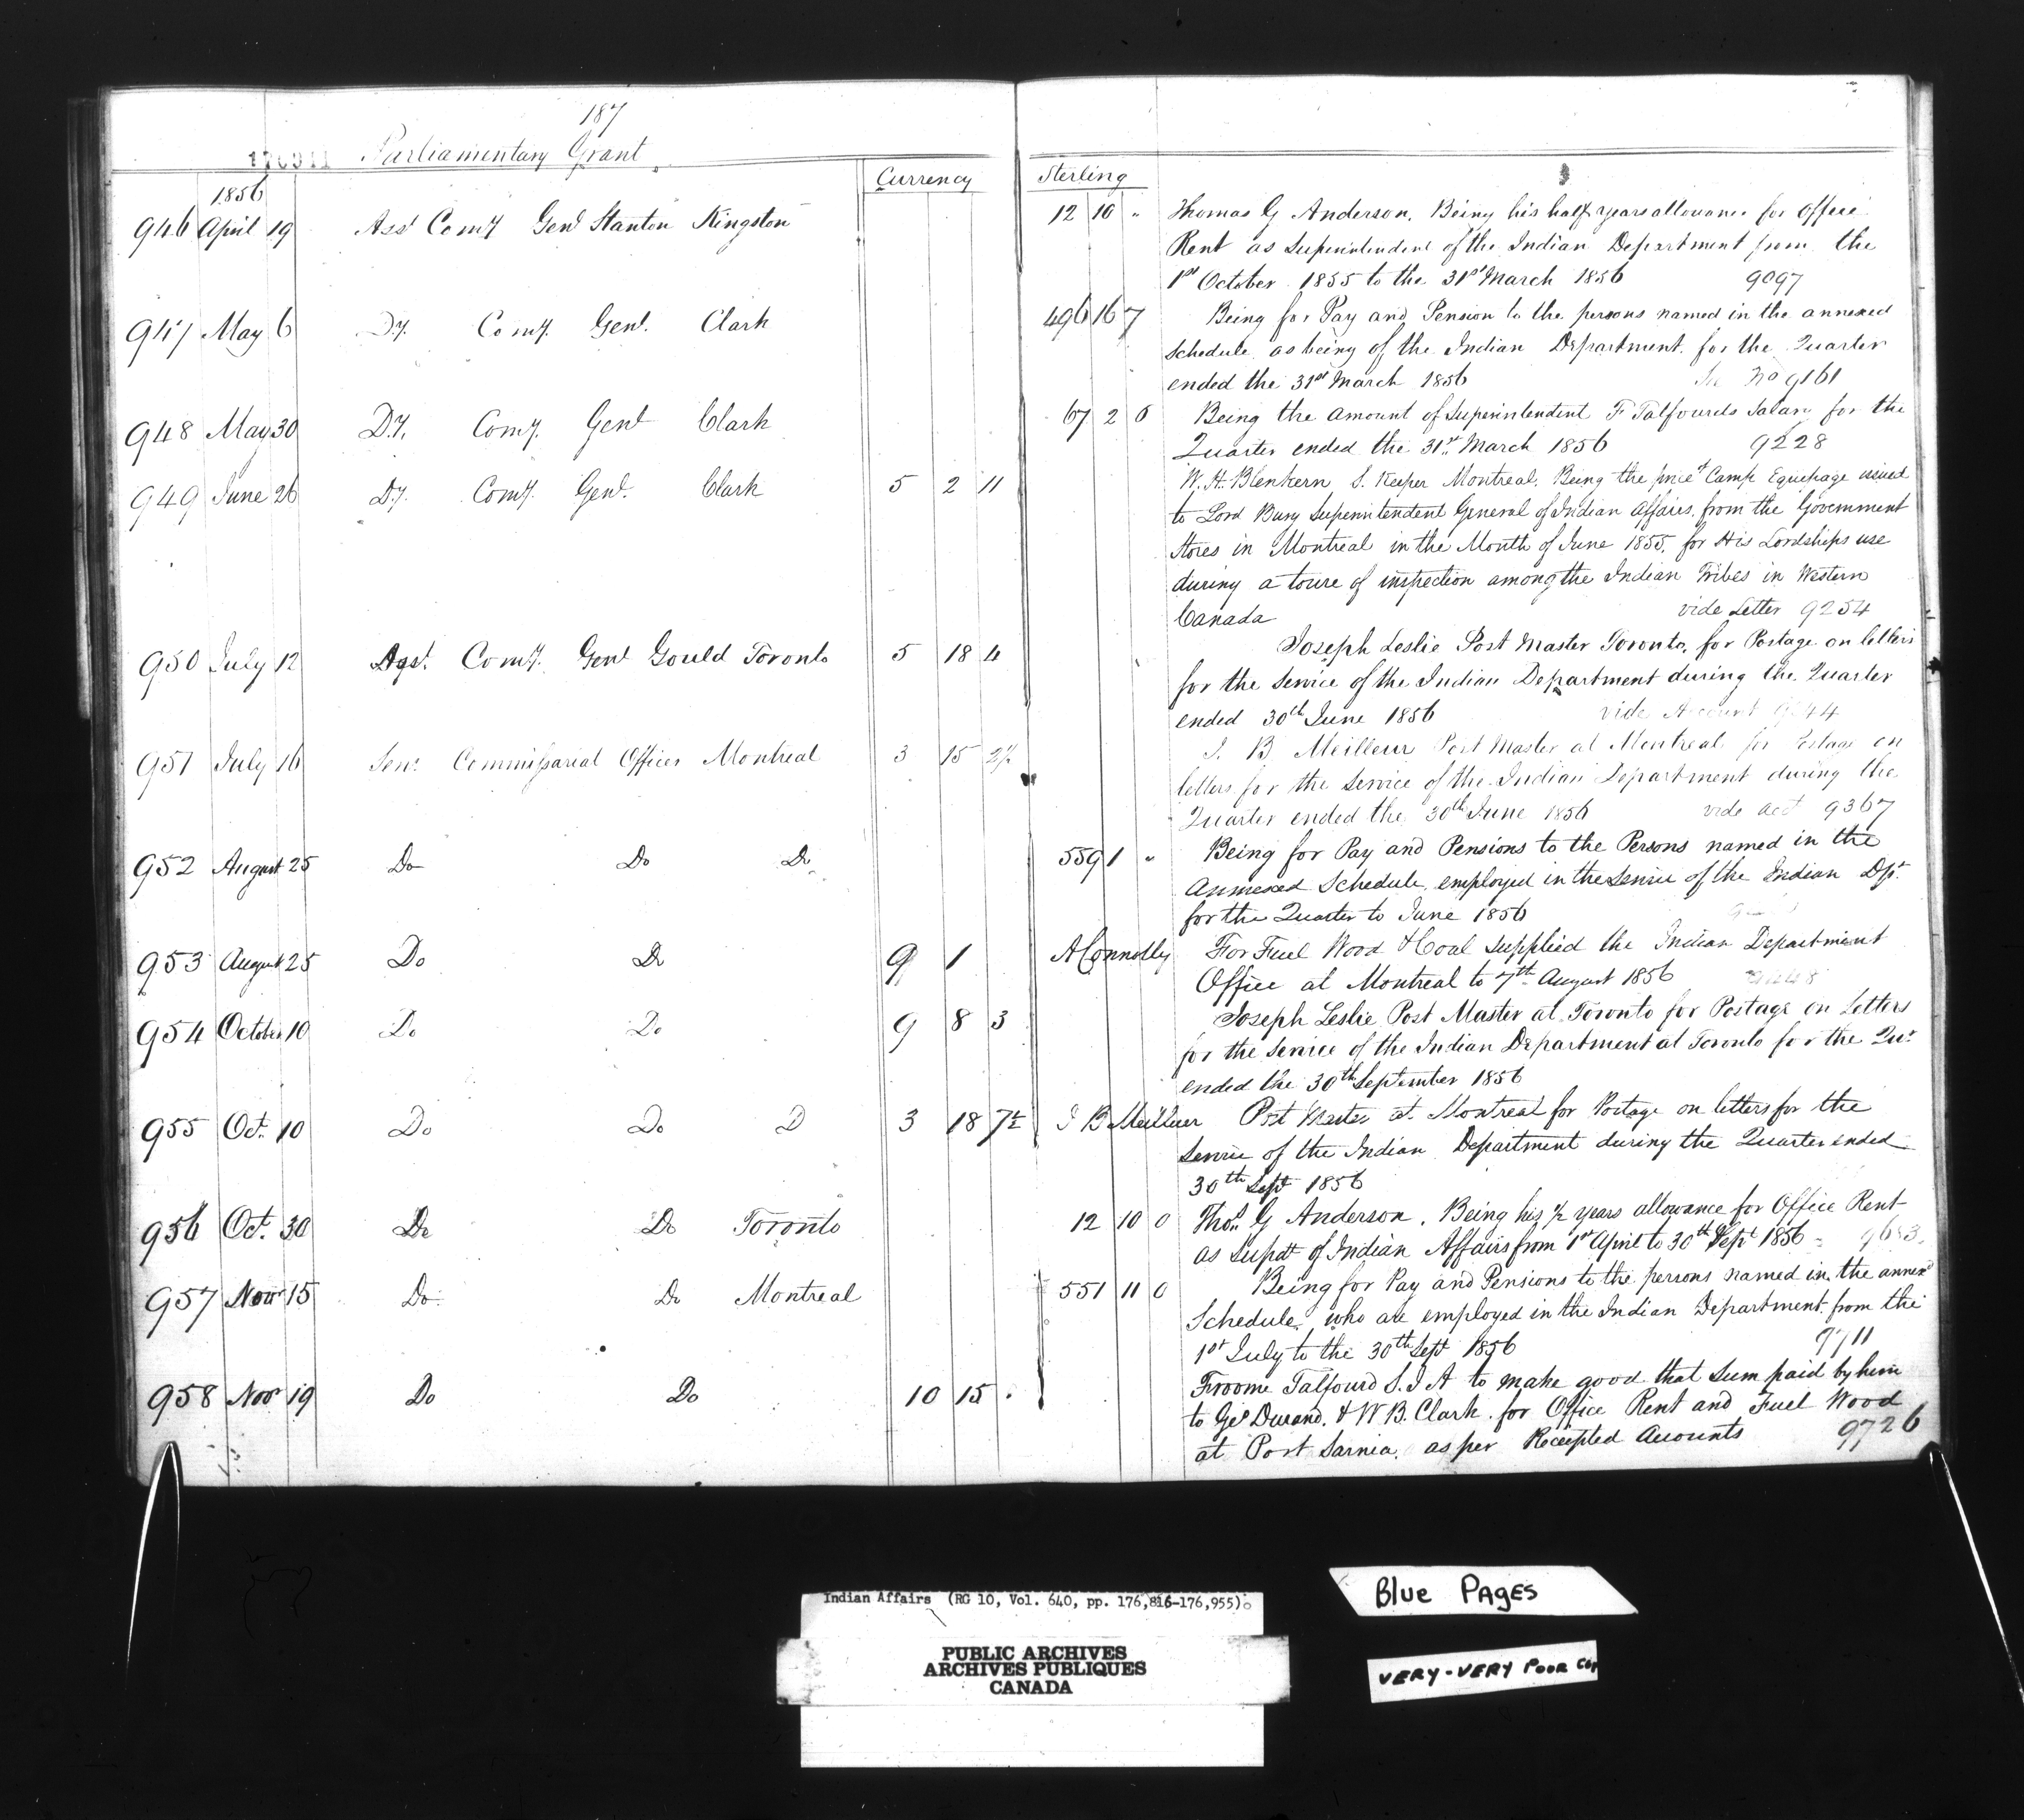 187
Parliamentary Grant
Currency
Sterling
1856
946 April 19 Asst Comy Genl Stanton Kingston 12 10 " Thomas G Anderson. Being his half years allowance for Office
Rent as Superintendent of the Indian Department from the
1st October 1855 to the 31st March 1856 9097
947 May 6 Dy. Comy. Genl. Clark 496 16 7 Being for Pay and Pension to the persons named in the annexed
Schedule as being of the Indian Department for the Quarter
ended the 31st March 1856 No 9161
948 May 30 Dy. Comy. Genl Clark 67 2 6 Being the amount of Superintendent F Talfourds Salary for the
Quarter ended the 31st March 1856 9228
949 June 26 Dy. Comy. Genl. Clark 5 2 11 W. H. Blenkern S. Keeper Montreal. Being the price of Camp Equepage issued
to Lord Bury Superintendent General of Indian Affairs. from the Government
Stores in Montreal in the Month of June 1855. for His Lordships use
during a toure of inspection among the Indian Tribes in Western
Canada vide Letter 9254
950 July 12 Asst. Comy. Genl Gould Toronto 5 18 4 Joseph Leslie Post Master Toronto, for Postage on letters
for the Service of the Indian Department during the Quarter
ended 30th June 1856 vide Account
951 July 16 Senr Commissariat Officer Montreal 3 15 2½ J. B Meilleur Post Master at Montreal for Postage on
letters for the Service of the Indian Department during the
Quarter ended the 30th June 1856 vide act 9367
952 August 25 Do Do Do. 559 1 " Being for Pay and Pensions to the Persons named in the
Annexed Schedule. employed in the Service of the Indian Dpt.
for the Quarter to June 1856
953 August 25 Do Do 9 1 A Connolly For Fuel Wood & Coal supplied the Indian Department
Office at Montreal to 7th August 1856
954 October 10 Do Do 9 8 3 Joseph Leslie Post Master at Toronto for Postage on Letters
for the Service of the Indian Department at Toronto for the Qur
ended the 30th September 1856
955 Oct. 10 Do Do D 3 18 7½ J B Meilleur Post Master at Montreal for Postage on letters for the
Service of the Indian Department during the Quarter ended
30th Sept 1856
956 Oct. 30 Do Do Toronto 12 10 0 Thos. G Anderson. Being his ½ years allowance for Office Rent
as Supdt of Indian Affairs from 1st April to 30th Sept 1856
957 Novr 15 Do Do Montreal 551 11 0 Being for Pay and Pensions to the persons named in the annexd
Schedule who are employed in the Indian Department from the
1st July to the 30th Sept 1856 9711
958 Novr 19 Do Do 10 15 . Froome Talfourd S. I A to make good that Sum paid by him
to Geo Durand. & W B. Clark. for Office Rent and Fuel Wood
at Port Sarnia. as per Receipted Accounts 9726
Indian Affairs (RG 10, Vol. 640, pp. 176,816-176,955)
PUBLIC ARCHIVES
ARCHIVES PUBLIQUES
CANADA
Blue PAges
VERY-VERY POOR COP